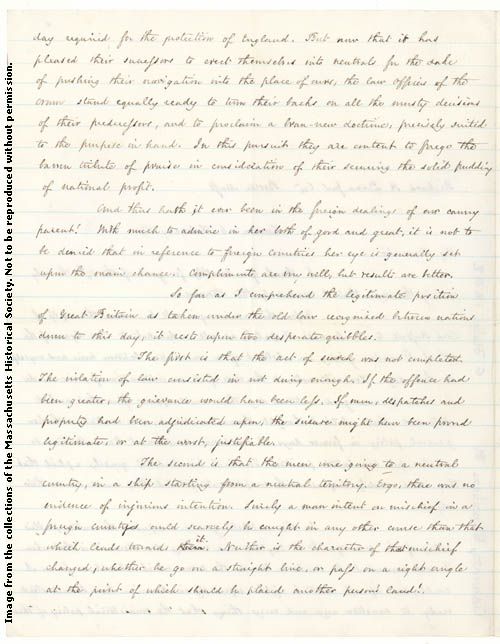 Image from the collections of the Massachusetts Historical Society. Not to be reproduced without permission.
day required for the protection of England. But now that it has
pleased their successors to erect themselves into neutrals for the sake
of pushing their navigation into the place of ours, the law officers of the
crown stand equally ready to turn their backs on all the musty decisions
of their predecessors, and to proclaim a bran-new doctrine, precisely suited
to the purpose in hand. In this pursuit they are content to forego the
barren tribute of praise in consideration of their securing the solid pudding
of national profit.
And thus hath it ever been in the foreign dealings of our canny
parent! With much to admire in her both of good and great, it is not to
be denied that in reference to foreign countries her eye is generally set
upon the main chance. Compliments are very well, but results are better.
So far as I comprehend the legitimate position
of Great Britain as taken under the old law recognised between nations
down to this day, it rests upon two desperate quibbles.
The first is that the act of search was not completed.
The violation of law consisted in not doing enough. If the offence had
been greater, the grievance would have been less. If men, despatches and
property had been adjudicated upon, the seizure might have been proved
legitimate, or at the worst, justifiable.
The second is that the men were going to a neutral
country, in a ship starting from a neutral territory. Ergo, there was no
evidence of injurious intention. Surely a man intent on mischief in a
foreign country could scarcely be caught on any other course than that
which leads towards it. Neither is the character of that mischief
changed, whether he go on a straight line, or pass on a right angle
at the point of which should be placed another person's land.